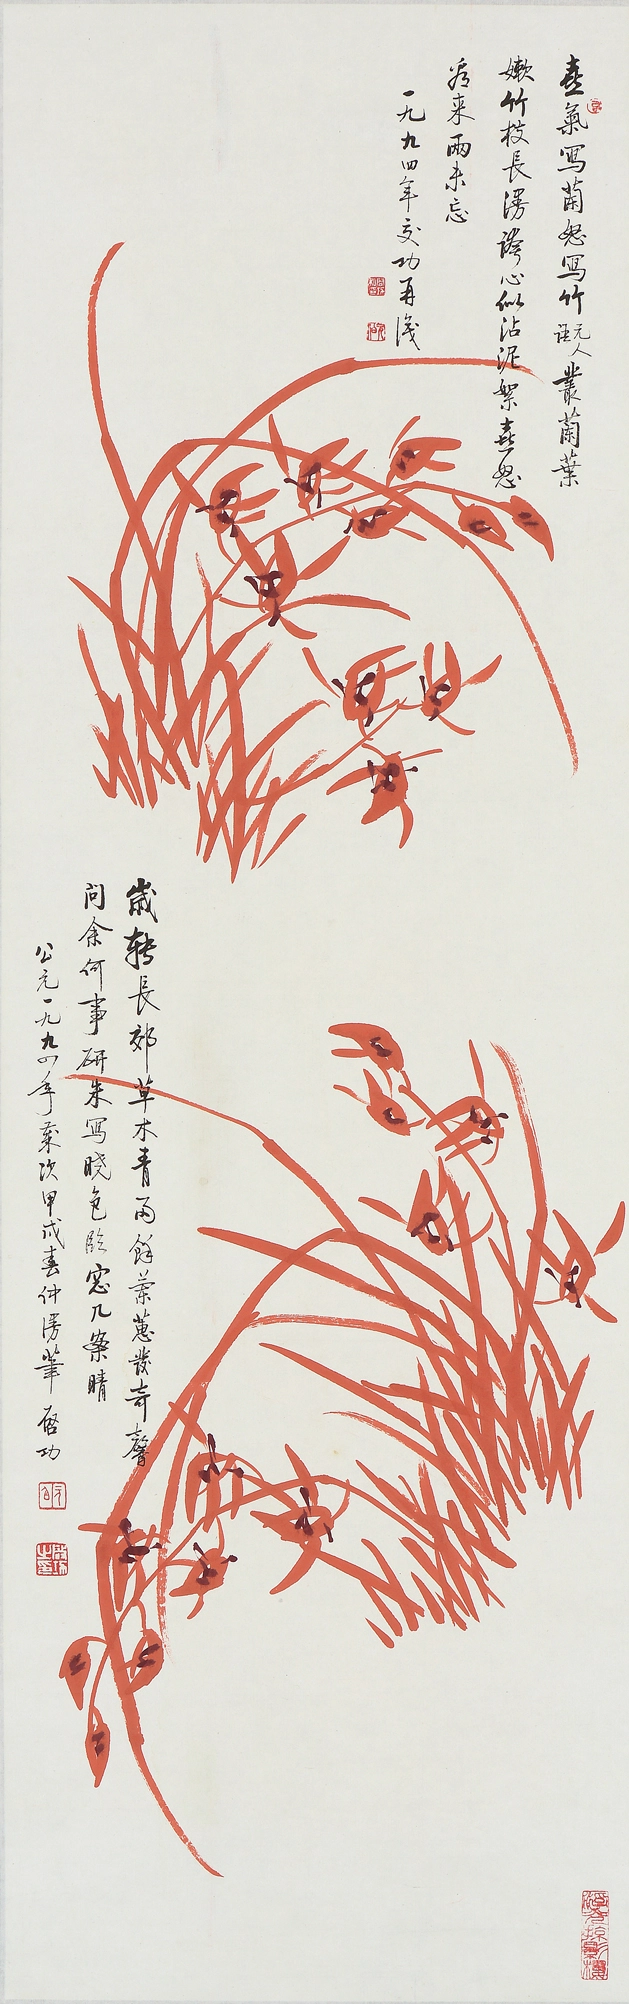 喜氣寫蘭怒寫竹元人語叢蘭葉
嫩竹枝長漫誇心似沾泥絮喜怒
看來兩未忘
一九九四年夏功再識
歲轉長郊草木青雨餘蘭蕙發奇馨
問余何事研朱寫曉色臨窓几案晴
公元一九九四年歲次甲戌春仲漫筆 啟功